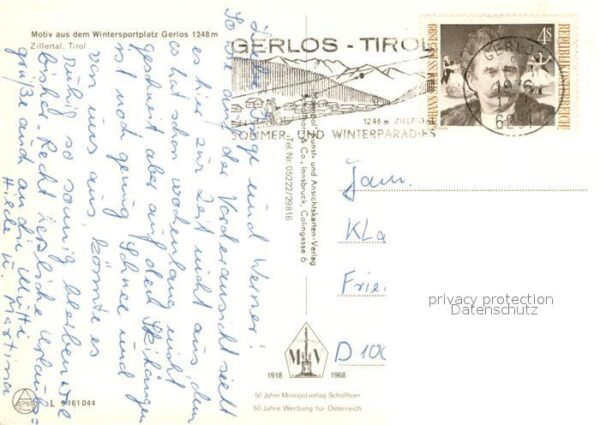 Motiv aus dem Wintersportplatz Gerlos 1248 m
Zillertal, Tirol
und Werner!
So wie auf der Vorderansicht sieht
es hier zur Zeit nicht aus, denn
es hat schon wochenlang nicht
geschneit aber auf den Skihängen
ist noch genug Schnee und
von uns aus, könnte es
ruhig so sonnig bleiben wie
bisher. Recht herzliche Urlaubs=
grüße auch an die Mutti
u. Martina
L 9461044
GERLOS - TIROL
1246 m ZILLERTAL
SOMMER- UND WINTERPARADIES
GERLOS
4S
REPUBLIK ÖSTERREICH
Monopol Kunst- und Ansichtskarten-Verlag
Schöllhorn & Co., Innsbruck, Colingasse 6
Tel. Nr. 05222/29816
Fam.
Kla
Frie
D 100
privacy protection
Datenschutz
M V
1918 1968
50 Jahre Monopolverlag Schöllhorn
50 Jahre Werbung für Österreich